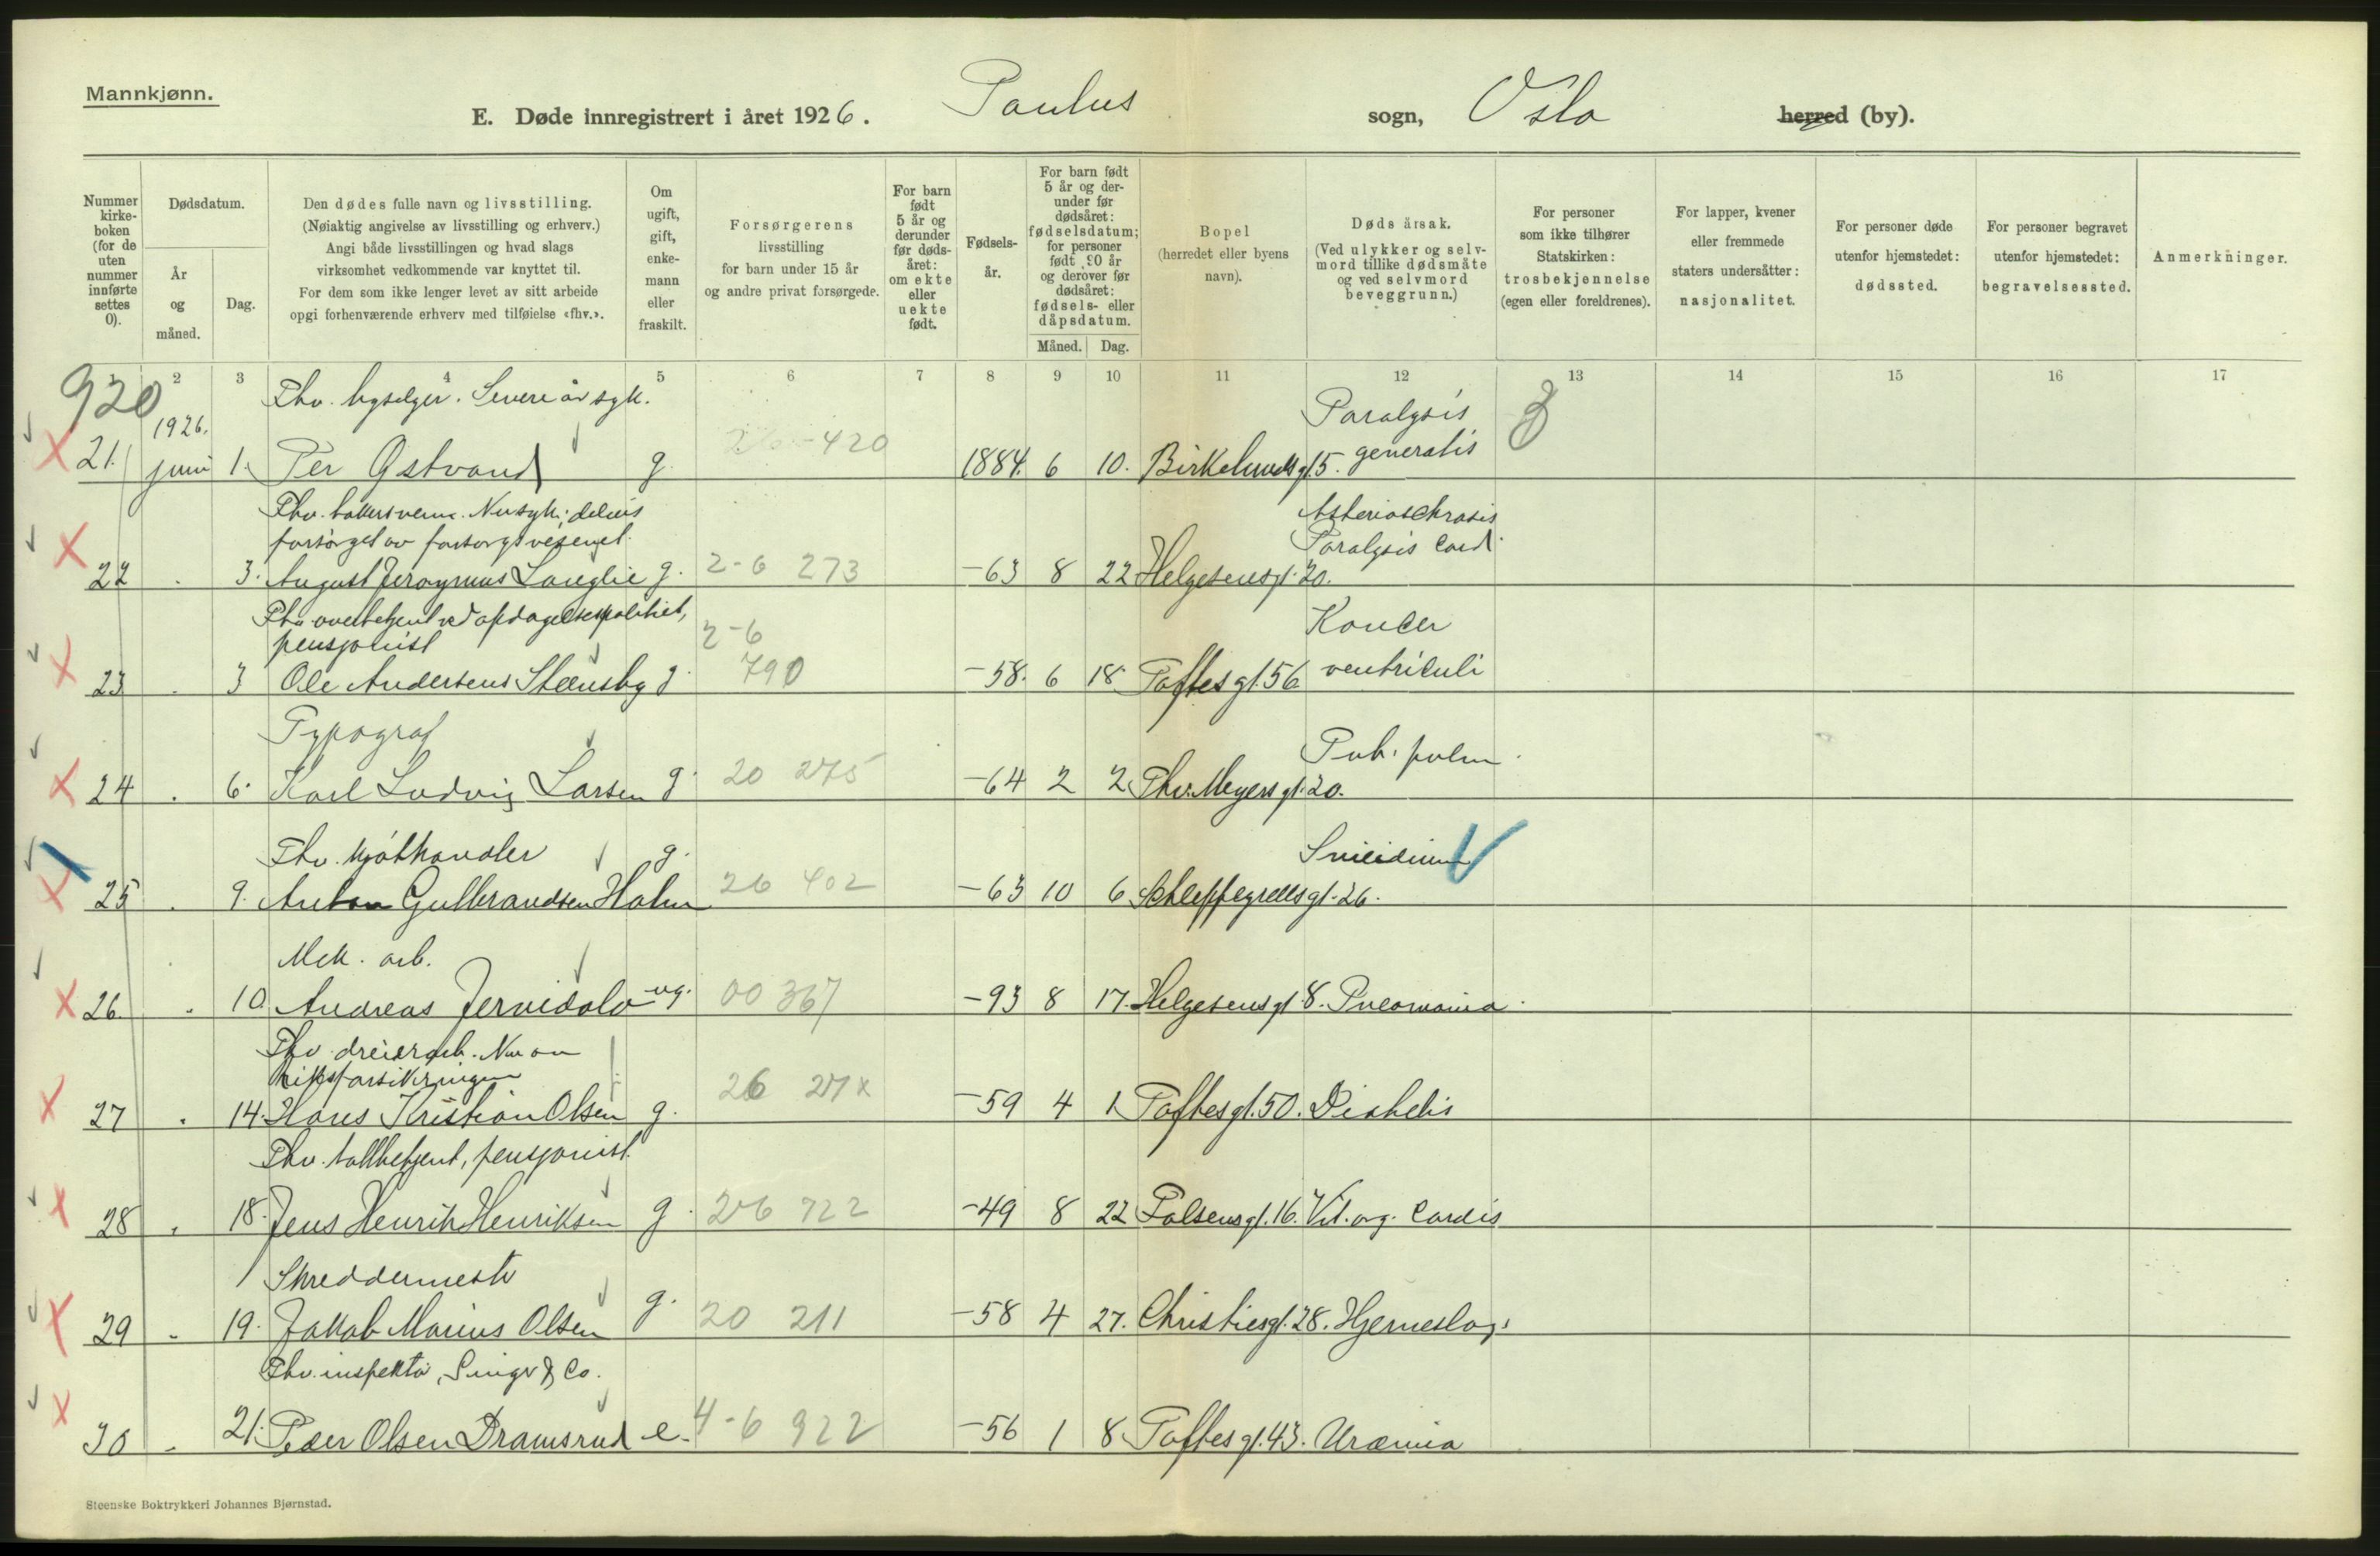 Mannkjønn.
E. Døde innregistrert i året 1926. Paulus sogn, Oslo herred (by).
Nummer kirke-boken (for de uten nummer innførte settes 0).
Dødsdatum.
År og måned.
Dag.
Den dødes fulle navn og livsstilling.
(Nøiaktig angivelse av livsstilling og erhverv.)
Angi både livsstillingen og hvad slags
virksomhet vedkommende var knyttet til.
For dem som ikke lenger levet av sitt arbeide
opgi forhenværende erhverv med tilføielse «fhv.».
Om ugift, gift, enke-mann eller fraskilt.
Forsørgerens
livsstilling
for barn under 15 år
og andre privat forsørgede.
For barn født 5 år og derunder før døds-året: om ekte eller uekte født.
Fødsels-år.
For barn født 5 år og der-under før dødsåret: fødselsdatum; for personer født 90 år og derover før dødsåret: fødsels- eller dåpsdatum.
Måned. Dag.
Bopel
(herredet eller byens
navn).
Dødsårsak.
(Ved ulykker og selv-
mord tillike dødsmåte
og ved selvmord
beveggrunn.)
For personer
som ikke tilhører
Statskirken:
trosbekjennelse
(egen eller foreldrenes).
For lapper, kvener
eller fremmede
staters undersåtter:
nasjonalitet.
For personer døde
utenfor hjemstedet:
dødssted.
For personer begravet
utenfor hjemstedet:
begravelsessted.
Anmerkninger.
1 2 3 4 5 6 7 8 9 10 11 12 13 14 15 16 17
920
1926.
Fhv. Senere år syk. Paralysis
21. juni 1. Per Østvand g. 420 1884. 6 10. Birkelundsgt. 5. generalis
Fhv. bakersvenn. Nu syk; delvis
forsørget av forsorgsvesenet. Paralysis Card.
22 . 3. August Jeronymus Langlie g. 2-6 273 -63 8 22 Helgesensgt. 20.
Fhv. overbetjent ved opdagelsespolitiet,
pensjonist 2-6 Kancer
23 . 3 Ole Andersens Steensby g. 790 -58. 6 18. Toftesgt. 56 ventriculi
Typograf Tub. pulm.
24 . 6. Karl Ludvig Larsen g. 20 275 -64 2 2. Thv. Meyersgt. 20.
Fhv. kjøthandler g. Suicidium
25 . 9. Anton Gulbrandsen Holm 26 402 -63 10 6 Schleppegrellsgt. 26.
Mek. arb.
26 . 10. Andreas Jervidalo ug. 00 367 -93 8 17. Helgesensgt. 8. Pneomonia.
Fhv. dreierarb. Nu av
Riksforsikringen
27 . 14. Hans Kristian Olsen g. 26 27x -59 4 1. Toftesgt. 50. Diabetis
Fhv. tollbetjent, pensjonist.
28 . 18. Jens Henrik Henriksen g. 26 722 -49 8 22 Falsensgt. 16. Vit. org. Cordis
Skreddermestr
29 . 19. Jakob Marius Olsen g. 20 211 -58 4 27. Christiesgt. 28. Hjerneslag.
Fhv. inspektør, Singer & Co.
30 . 21. Peder Olsen Dramsrud e. 4-6 922 -56 1 8. Toftesgt. 43. Uræmia
Steenske Boktrykkeri Johannes Bjørnstad.